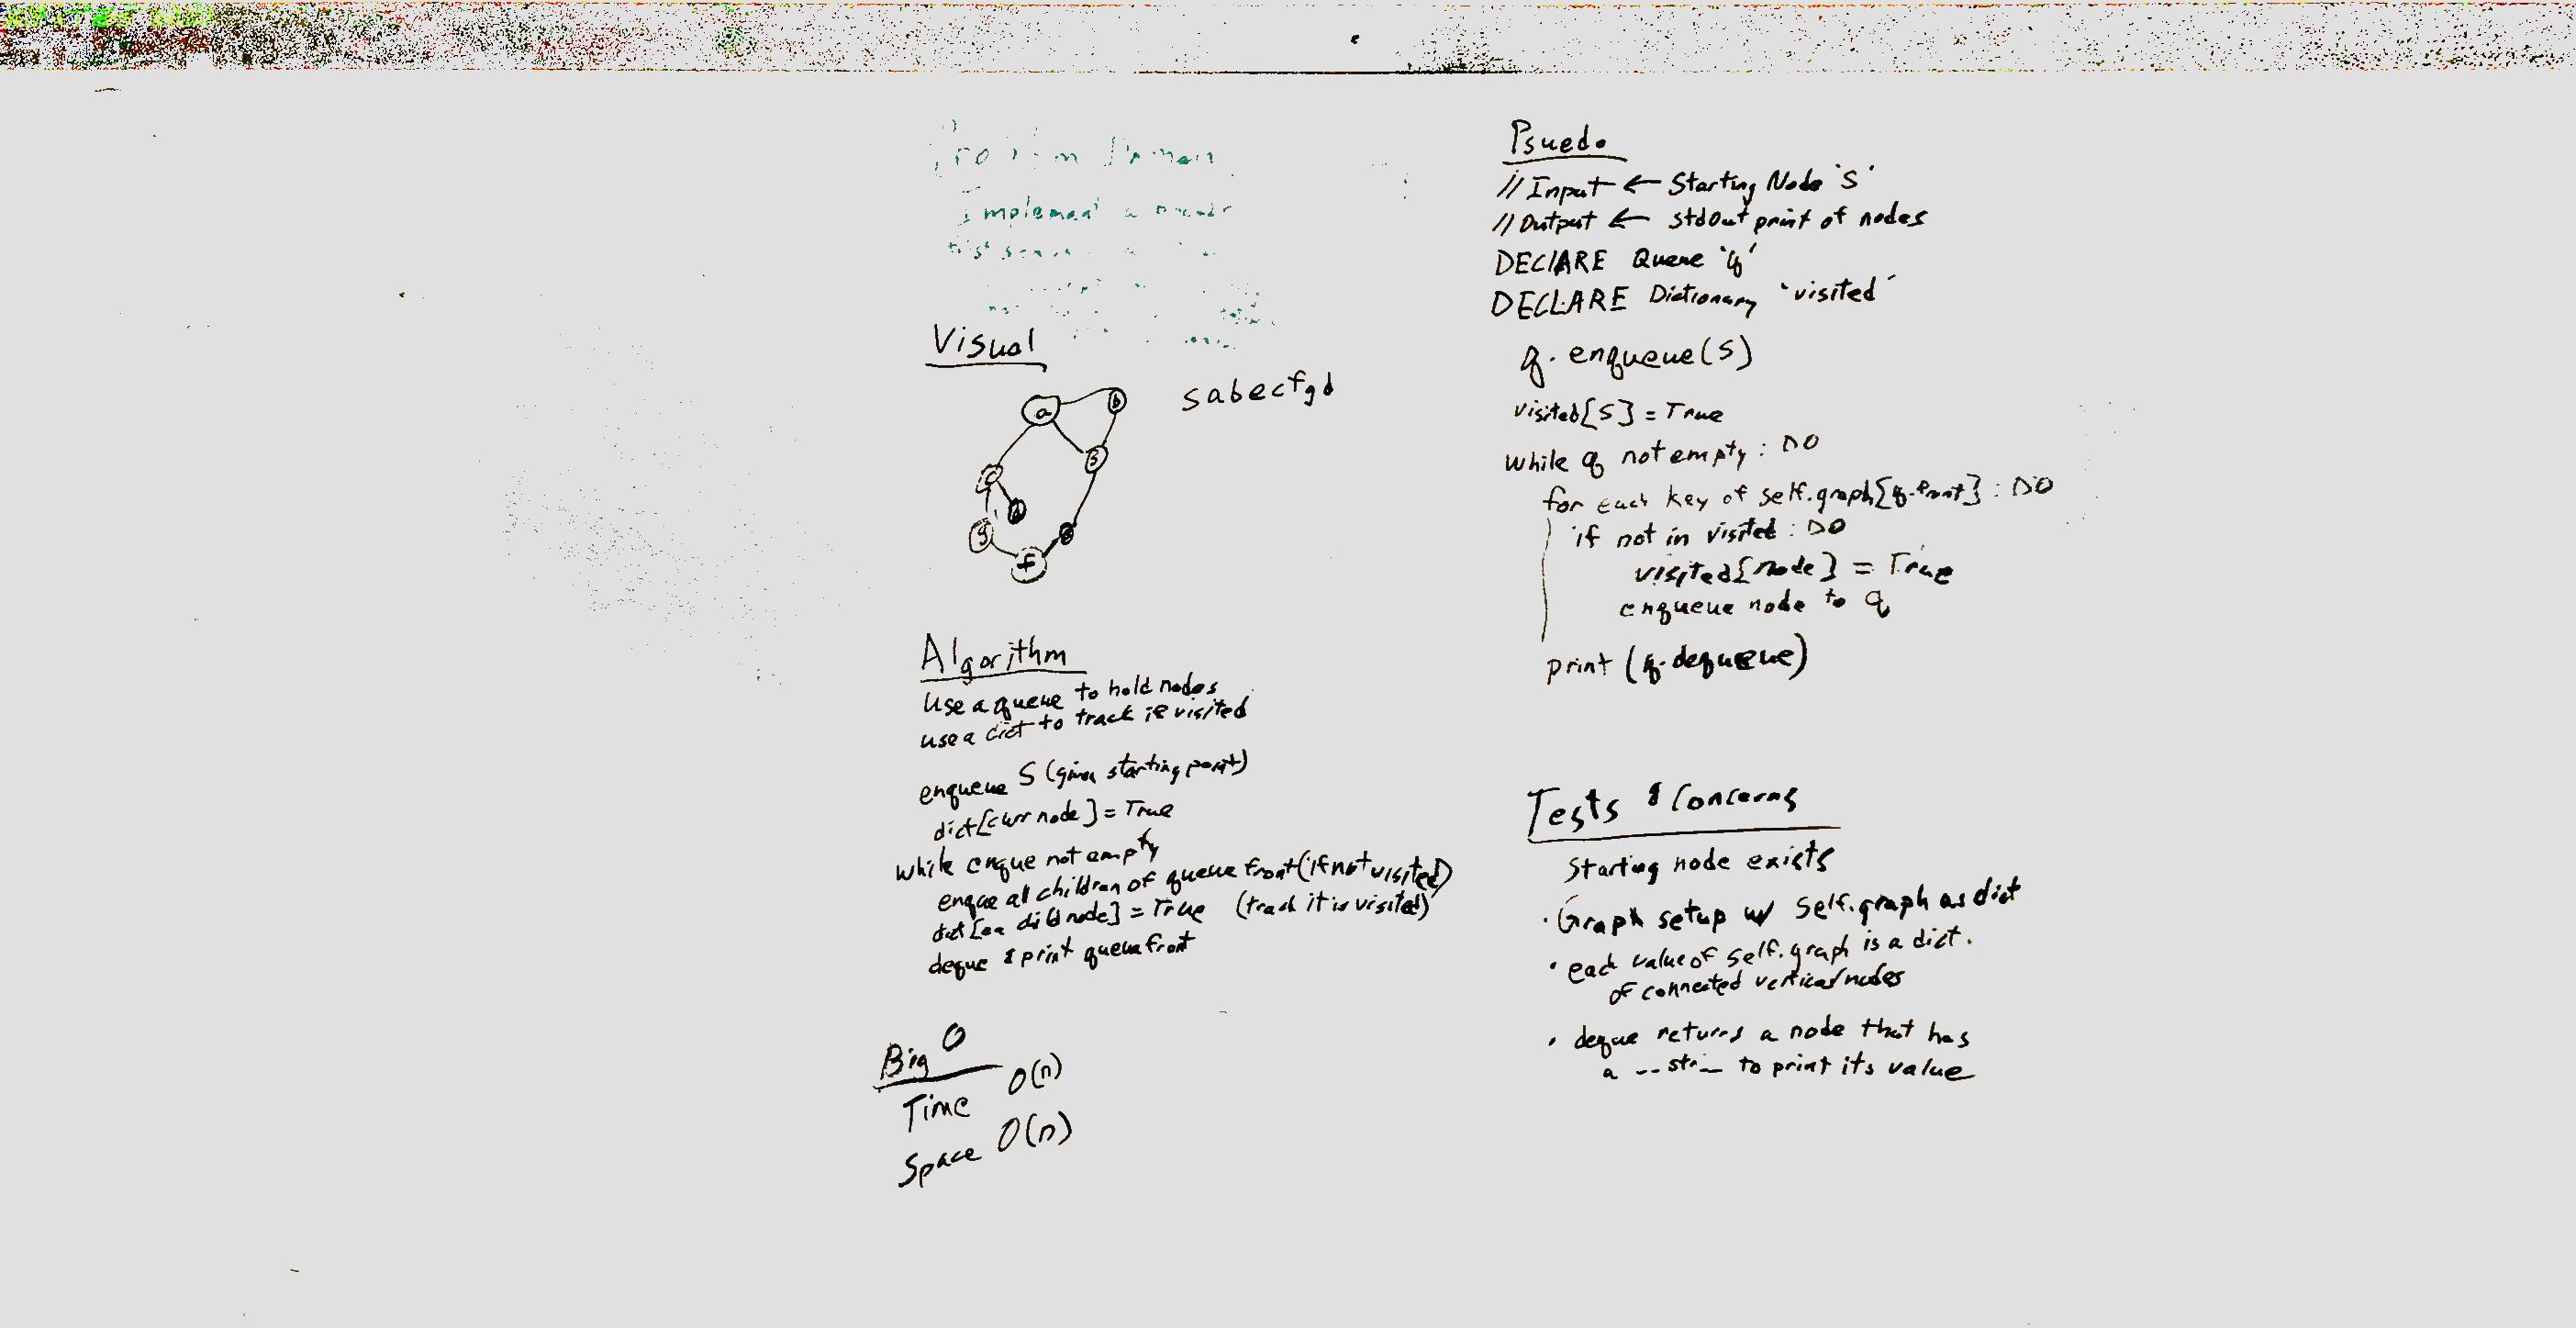 Implement a
Visual
a
b
sabecfgd
S
g
f
Algorithm
Use a queue to hold nodes
use a dict to track if visited
enqueue S (given starting point)
dict[curr node] = True
while enque not empty
enque all children of queue front (if not visited)
dict[ea child node] = True (track it is visited)
deque & print queue front
Big O
Time O(n)
Space O(n)
Psuedo
// Input ← Starting Node 'S'
// Output ← stdout print of nodes
DEClARE Queue 'q'
DECLARE Dictionary 'visited'
q.enqueue(S)
visited[S] = True
while q not empty : DO
for each key of self.graph[q.front] : DO
if not in visited : DO
visited[node] = True
enqueue node to q
print (q.dequeue)
Tests & Concerns
Starting node exists
· Graph setup w/ self.graph as dict
· each value of self.graph is a dict.
of connected vertices/nodes
· deque returns a node that has
a __str__ to print its value